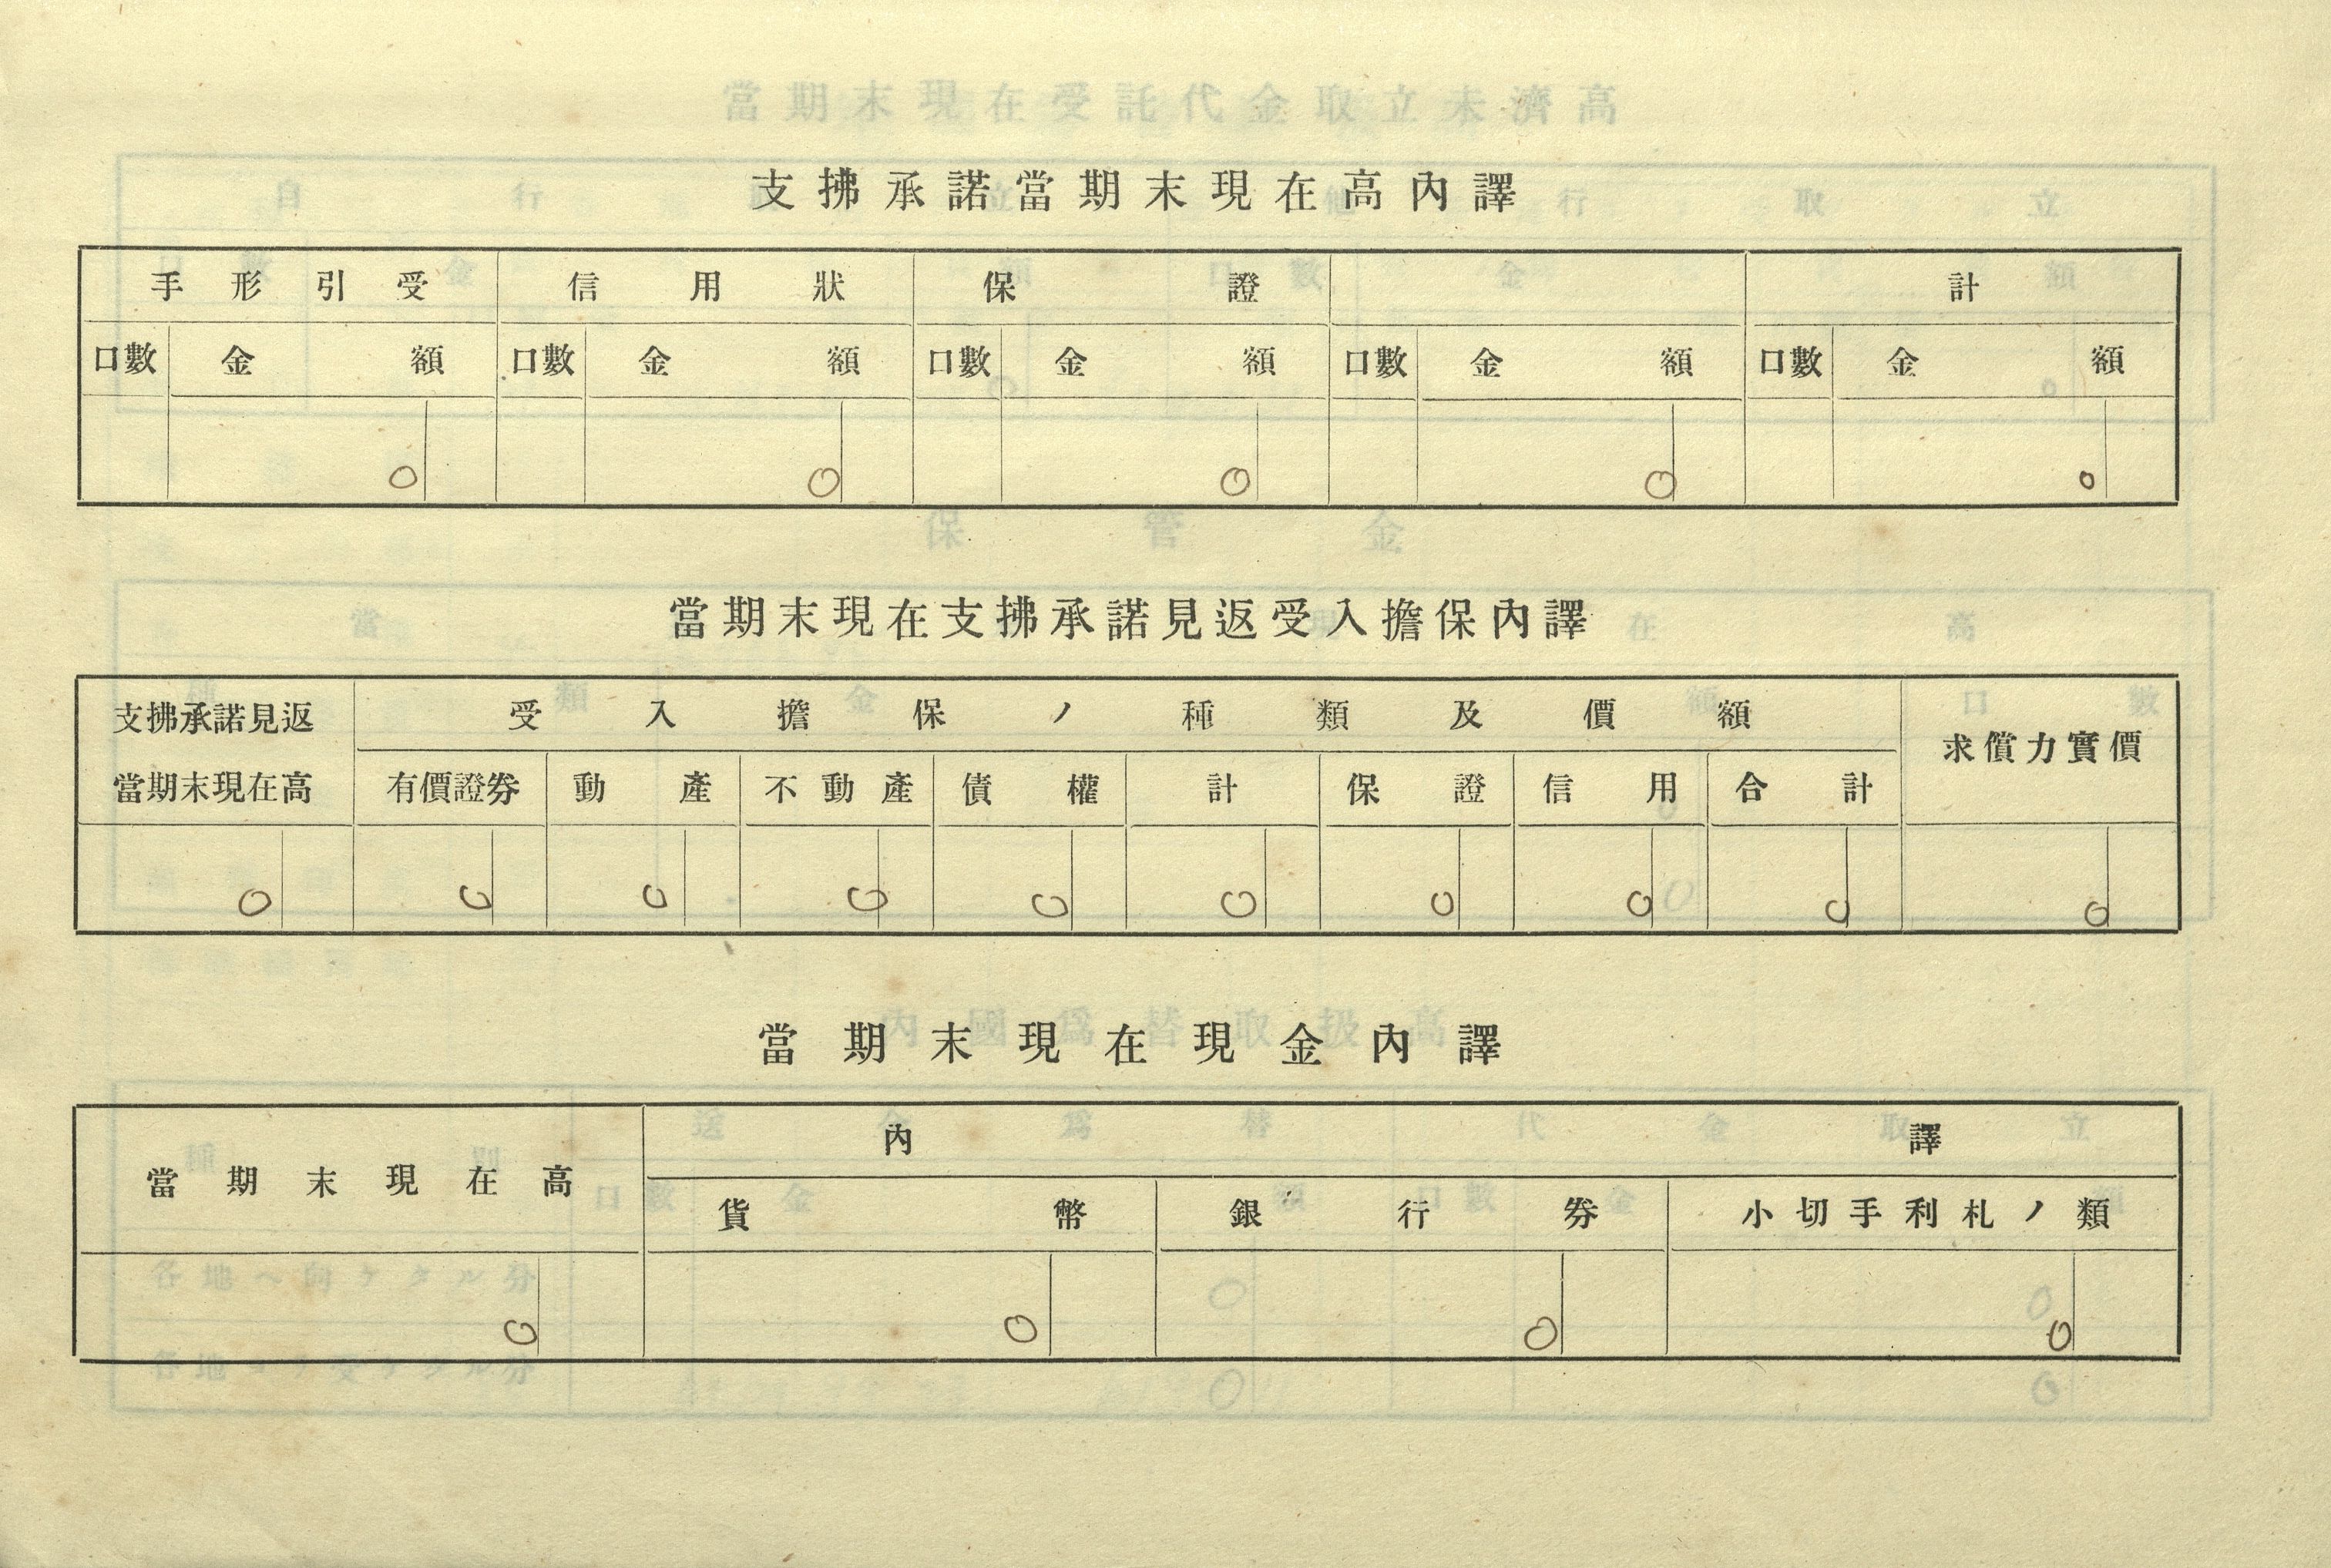 支拂承諾當期末現在高內譯
手形引受 信用狀 保證 計
口數 金額 口數 金額 口數 金額 口數 金額 口數 金額
0 0 0 0 0
當期末現在支拂承諾見返受入擔保內譯
支拂承諾見返 受入擔保ノ種類及價額 求償力實價
當期末現在高 有價證券 動產 不動產 債權 計 保證 信用 合計
0 0 0 0 0 0 0 0 0 0
當期末現在現金內譯
當期末現在高 內譯
貨幣 銀行券 小切手利札ノ類
0 0 0 0